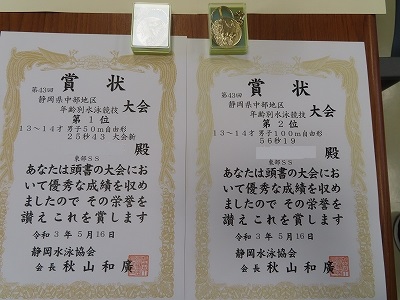 賞状
第43回
静岡県中部地区
年齢別水泳競技
大会
第1位
13～14才 男子50m自由形
25秒43 大会新
殿
東部SS
あなたは頭書の大会にお
いて優秀な成績を収め
ましたので その栄誉を
讃え これを賞します
令和3年5月16日
静岡水泳協会
会長 秋山和廣
賞状
第43回
静岡県中部地区
年齢別水泳競技
大会
第2位
13～14才 男子100m自由形
56秒19
殿
東部SS
あなたは頭書の大会にお
いて優秀な成績を収め
ましたので その栄誉を
讃え これを賞します
令和3年5月16日
静岡水泳協会
会長 秋山和廣